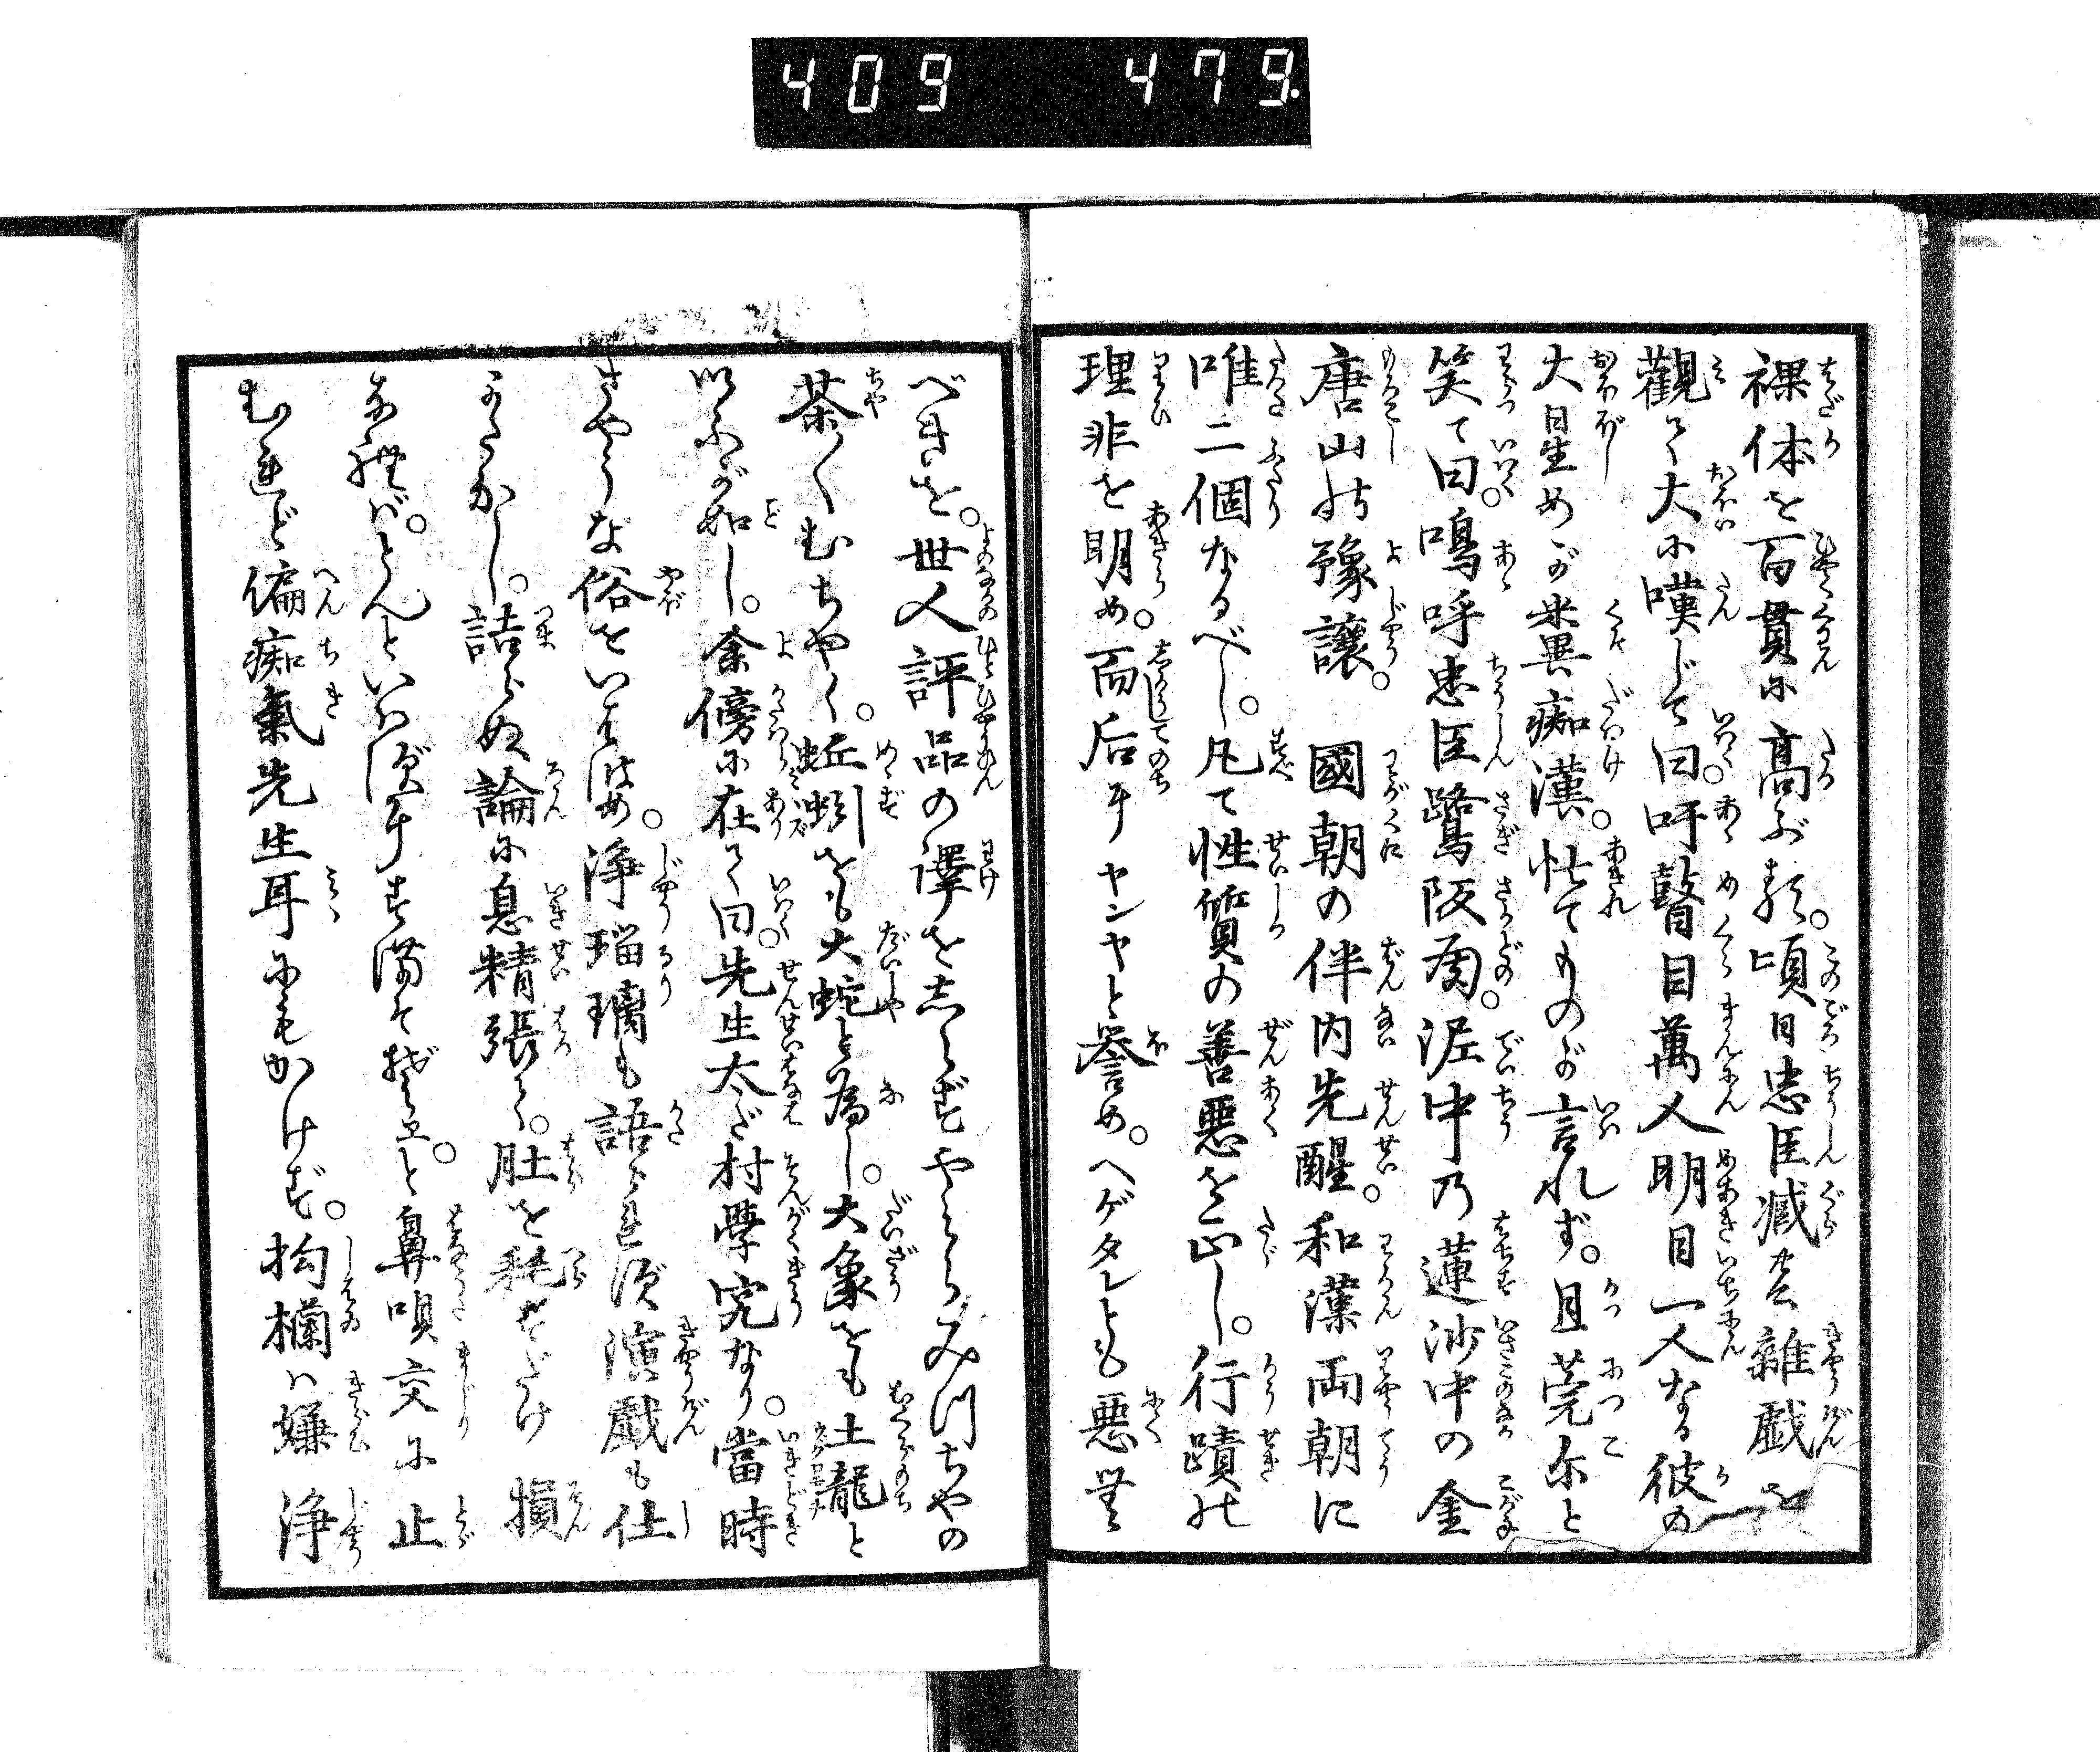 409 479.
裸体を百貫に高ぶる頬。頃日忠臣蔵麽雑戯を
観て大に嘆じて曰。吁瞽目萬人明目一人なる彼の
大星めが糞痴漢。惘てものが言れず。且莞尓と
笑て曰。鳴呼忠臣鷺阪甸。泥中乃蓮沙中の金
唐山の豫譲。國朝の伴内先醒。和漢両朝に
唯二個なるべし。凡て性質の善悪を正し。行蹟の
理非を明め。而后チヤンヤと誉め。ヘゲタレとも悪
べきを。世人評品の譯をしらずやたらみ川ちやの
茶〱むちや〱。蚯蚓をも大蛇と為し。大象をも土龍と
以ふが如し。余傍に在て曰。先生太だ村學究なり。當時
さやうな俗をいはば。浄瑠璃も語られず演戯も仕
がたかし。詰らぬ論に息精張て。肚を耗すだけ 損
なれば。とんといはずにすませたまへ。と鼻唄交に止
むれど偏痴氣先生耳にもかけず。拘欄ハ嫌 浄